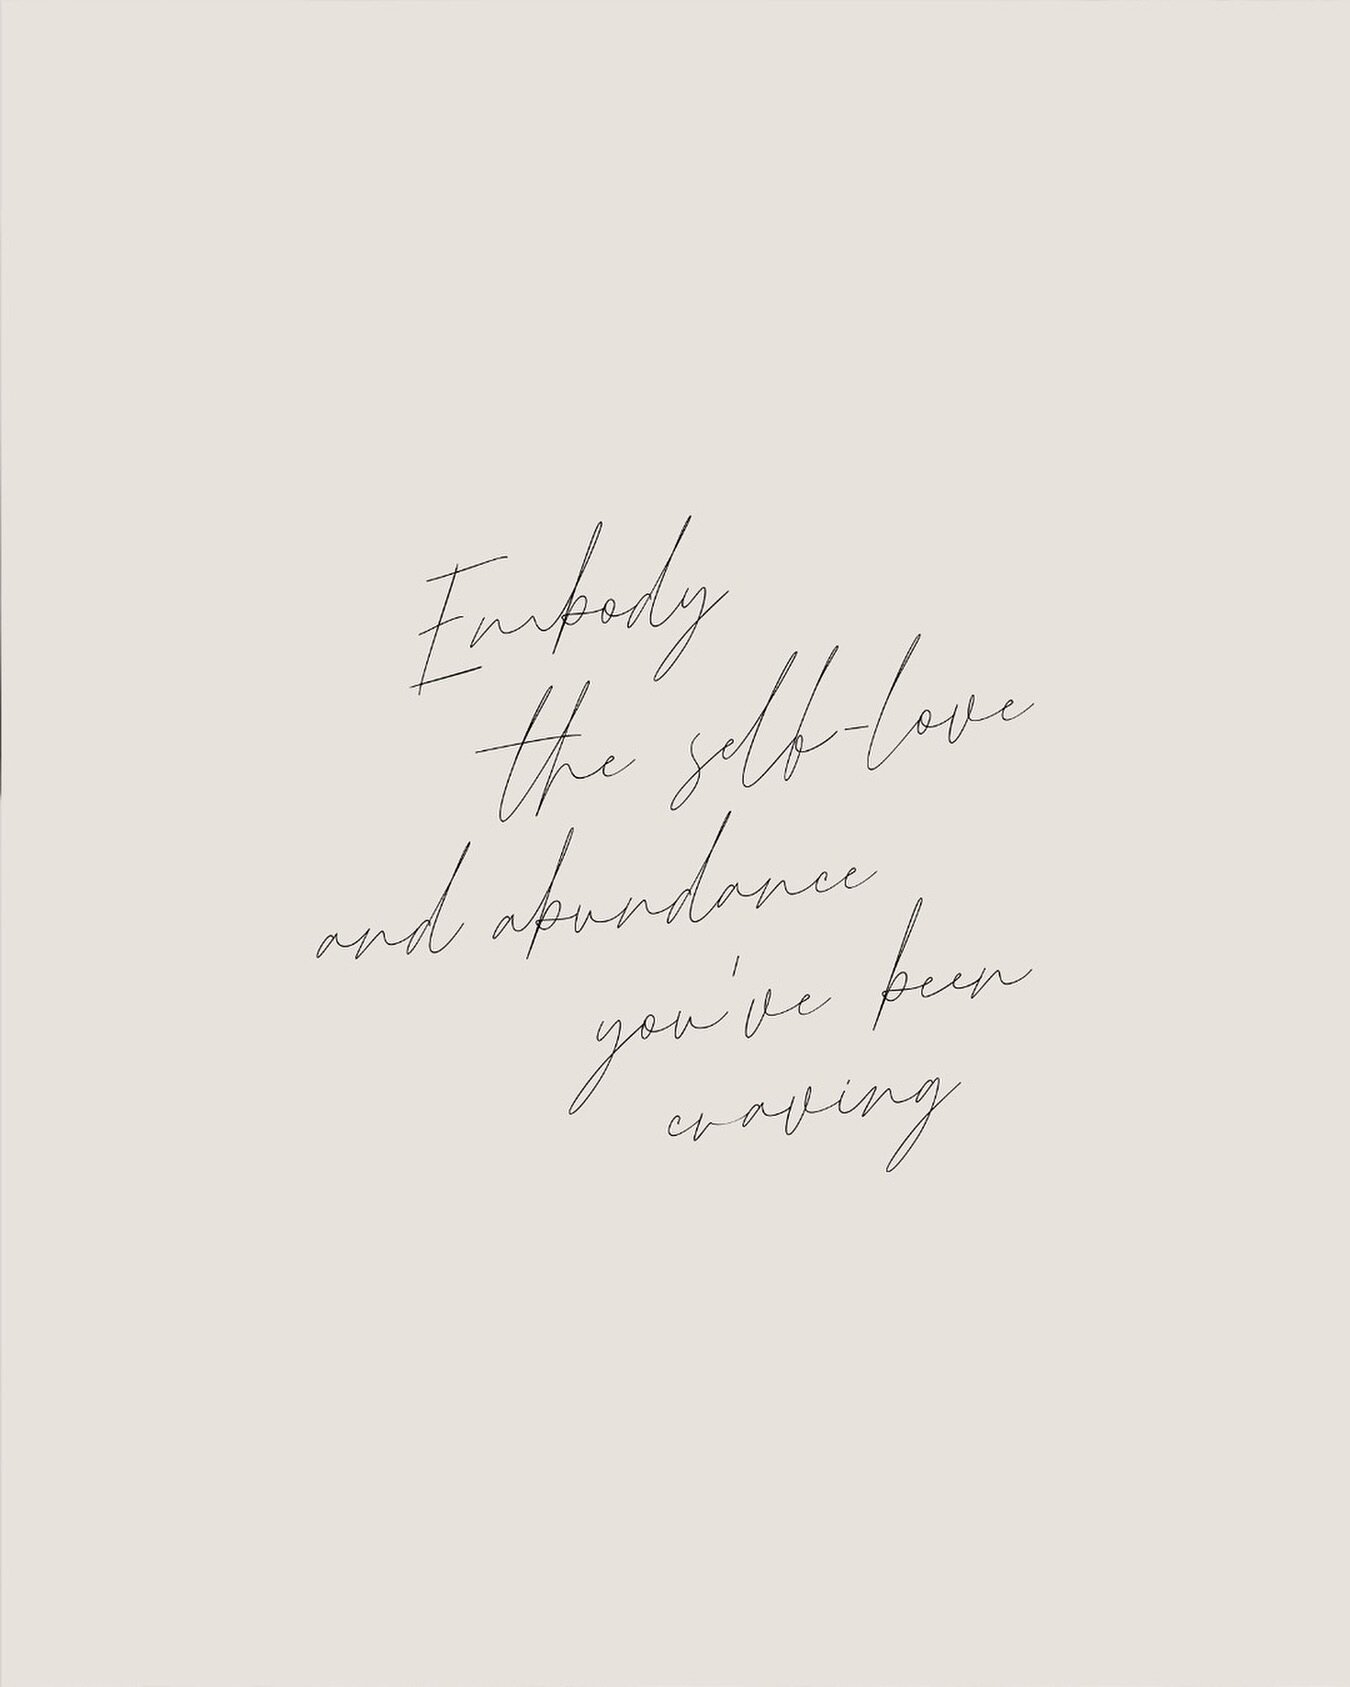 Embody
the self-love
and abundance
you've been
craving